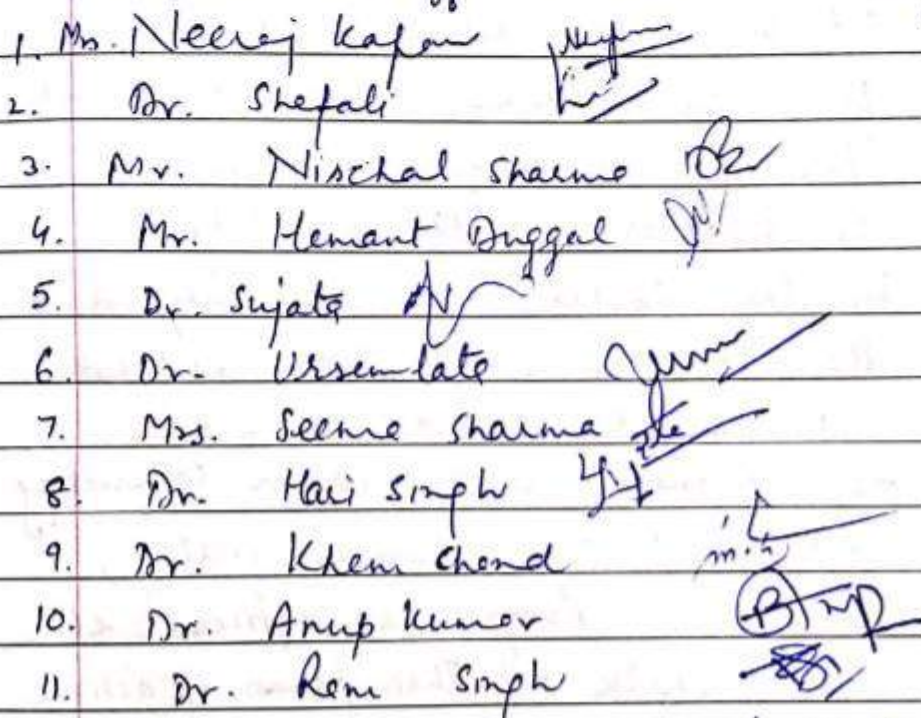 1. Mr. Neeraj Kapoor
2. Dr. Shefali
3. Mr. Nischal Sharma
4. Mr. Hemant Duggal
5. Dr. Sujata
6. Dr. Ursemlata
7. Mrs. Seema Sharma
8. Dr. Hari Singh
9. Dr. Khem Chand
10. Dr. Anup Kumar
11. Dr. Ram Singh